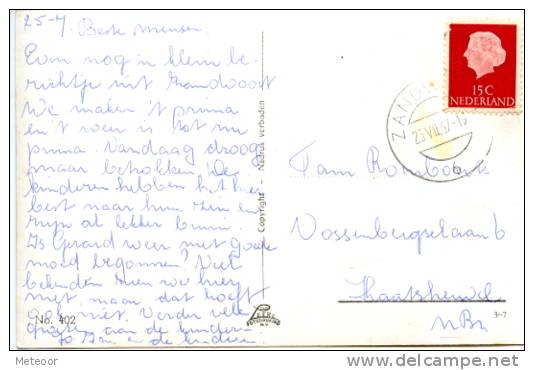 25-7 Beste mensen
Even nog 'n klein be-
richtje uit Zandvoort
We maken 't prima
en 't weer is tot nu
prima. Vandaag droog
maar betrokken. De
kinderen hebben het hier
best naar hun zin en
zijn al lekker bruin.
Is Gerard weer met goede
moed begonnen? Veel
bekenden zien we hier
niet, maar dat hoeft
ook niet. Verder vele
groeten aan de kinderen
en de kinderen
No. 402
Copyright - Nadruk verboden
15 C
NEDERLAND
ZANDV
25 VII.57-15
6
Fam Rombouts
Vossenbergselaan 6
Kaatsheuvel
NBr
3-7
Meteoor
http://www.delcampe.net